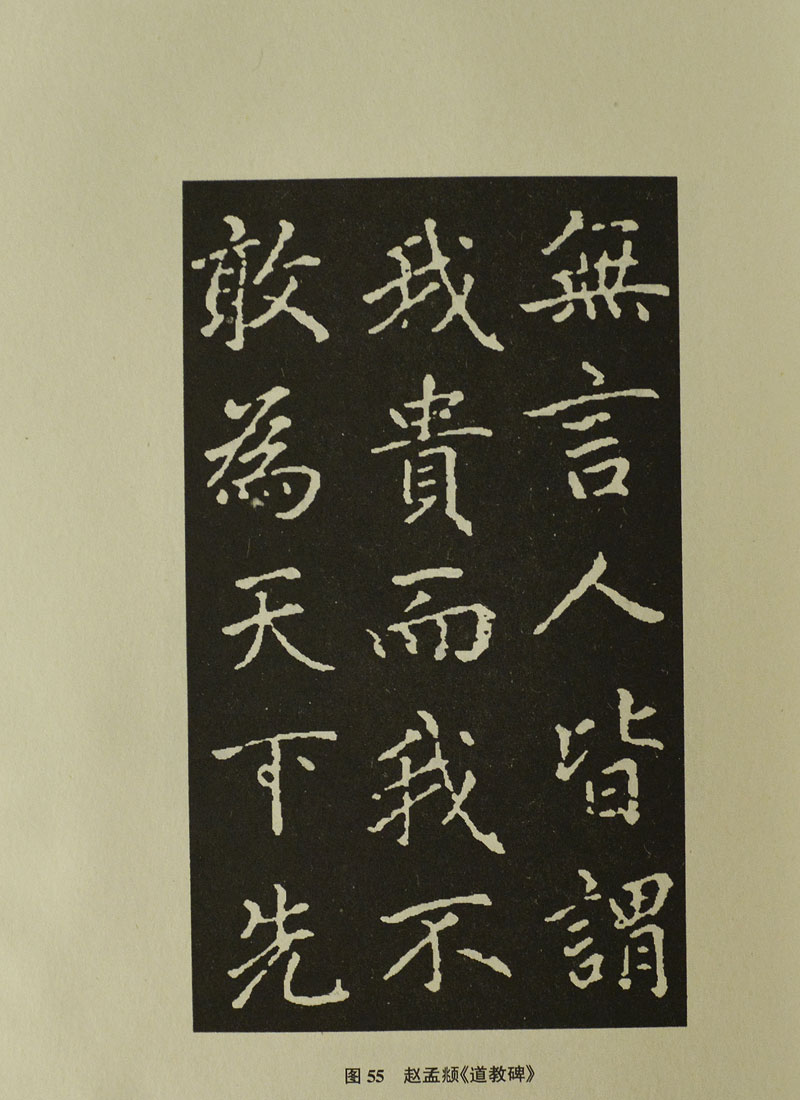 無言人皆謂
我貴而我不
敢為天下先
图 55 赵孟頫《道教碑》